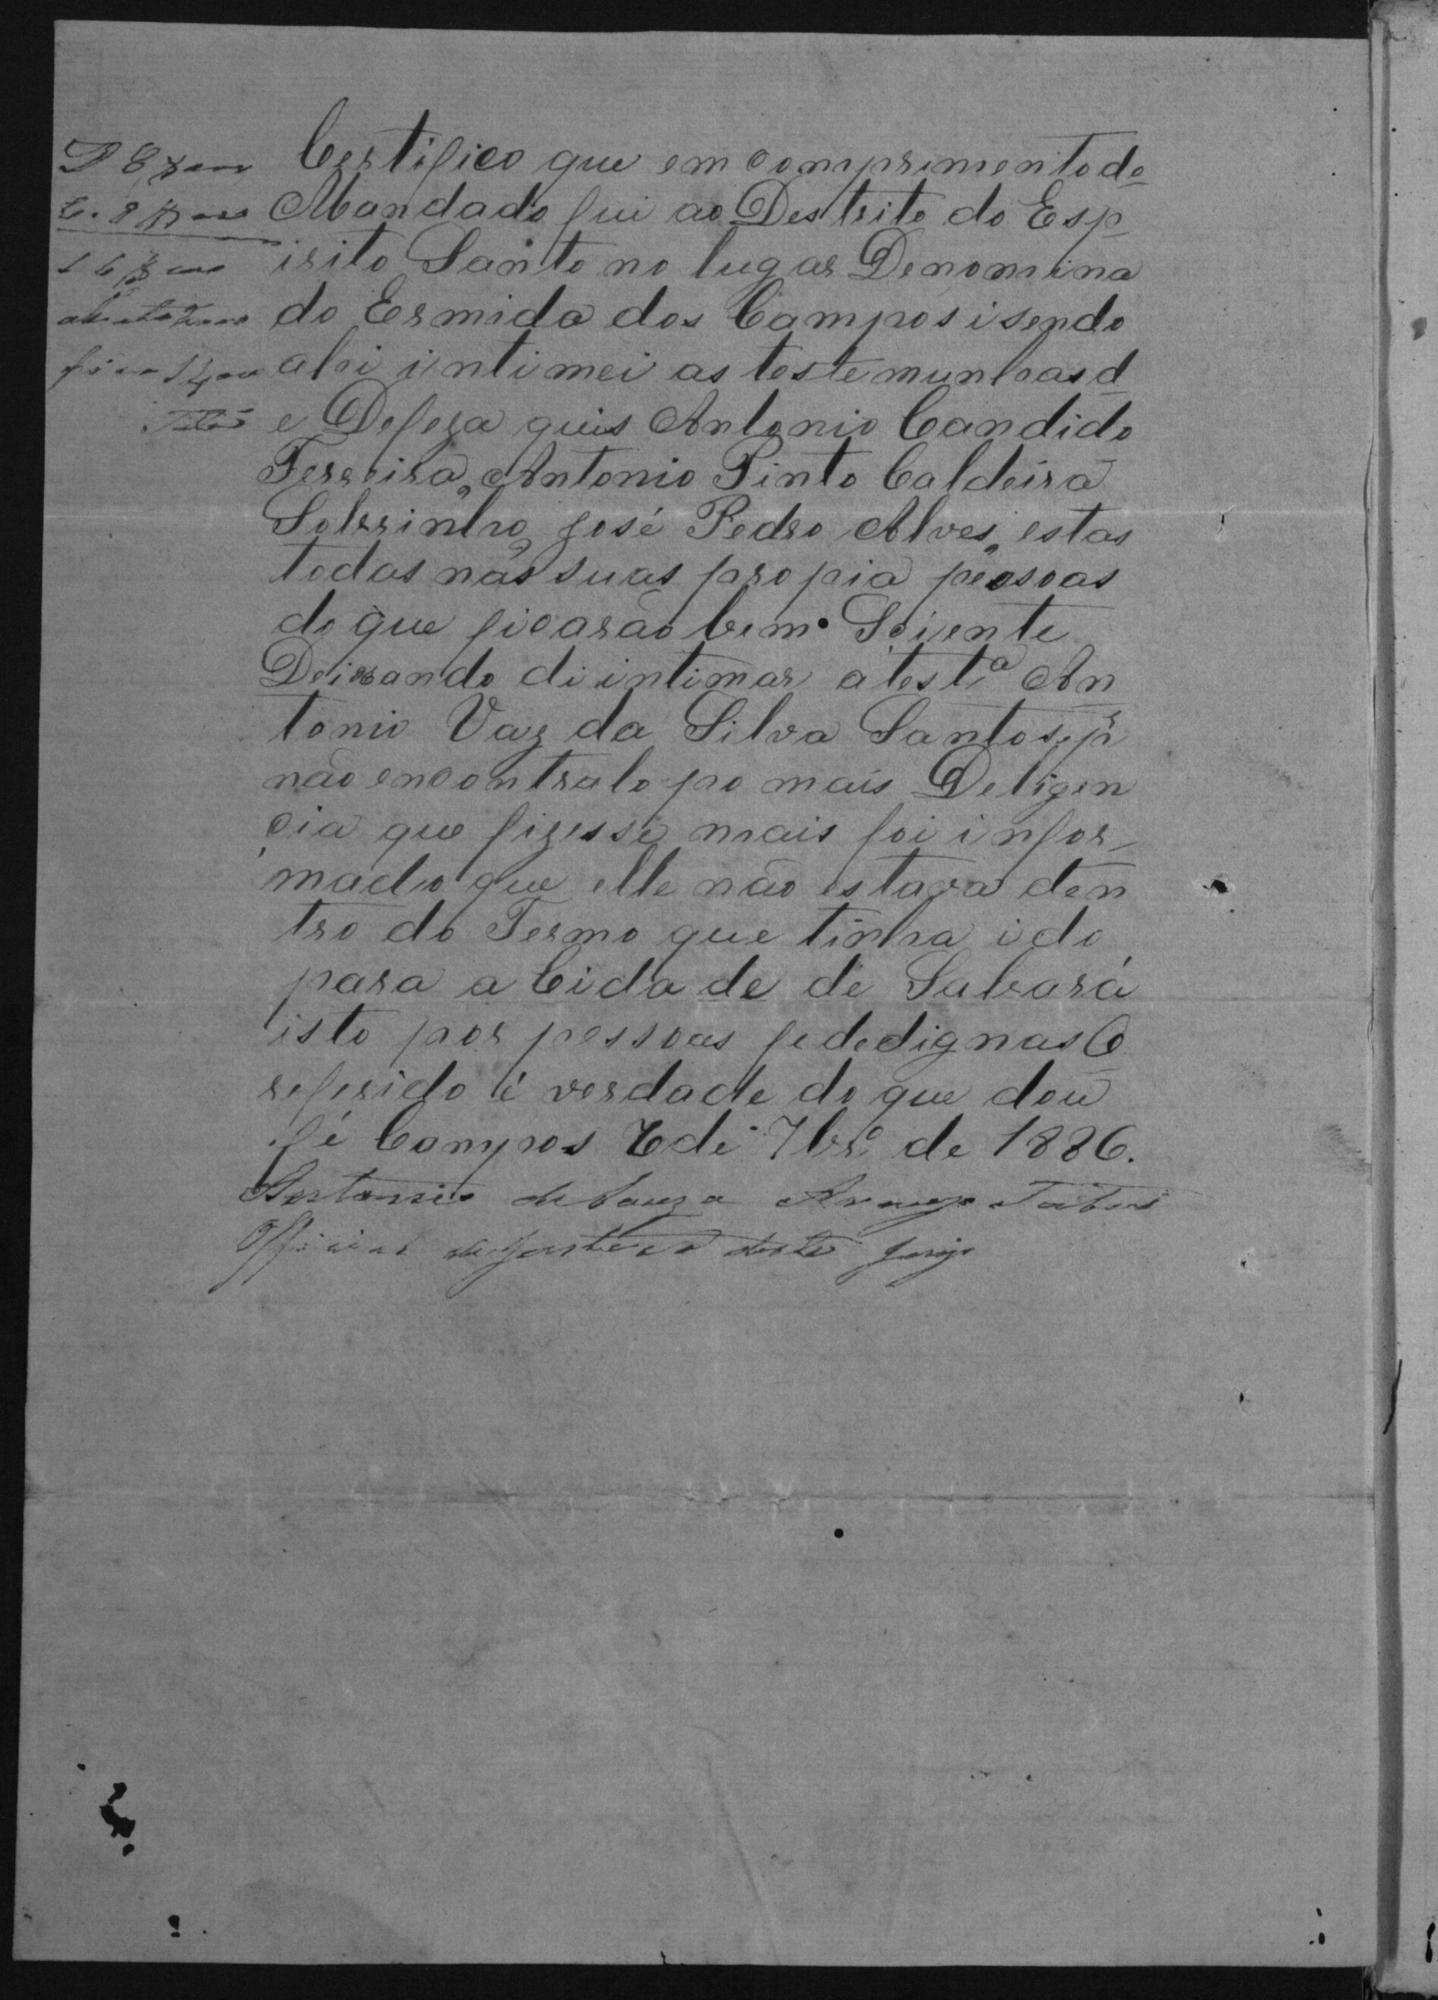 Certifico que em comprimento do
Mandado fui ao Destrito do Esp
irito Santo no lugar Denomina
do Ermida dos Campos i sendo
ahi intimei as testemunhas d
e Defeza quis Antonio Candido
Ferreira, Antonio Pinto Caldeira
Sobrinho, José Pedro Alves, estas
todas nas suas propia pessoas
do que ficarão bem Sciente
Deixando di intimar a testª An
tonio Vaz da Silva Santos, pr
não encontralo po mais Deligen
cia que fizesse, mais foi infor
mado que elle não estava den
tro do Termo que tinha ido
para a Cidade de Sabará
isto por pessoas fededignas O
referido é verdade do que dou
fé Campos 6 de 7brº de 1886.
Antonio de Souza
Official de Justiça deste Juizo